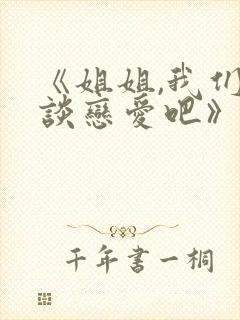 《姐姐,我们
談戀愛吧》
千年書一桐